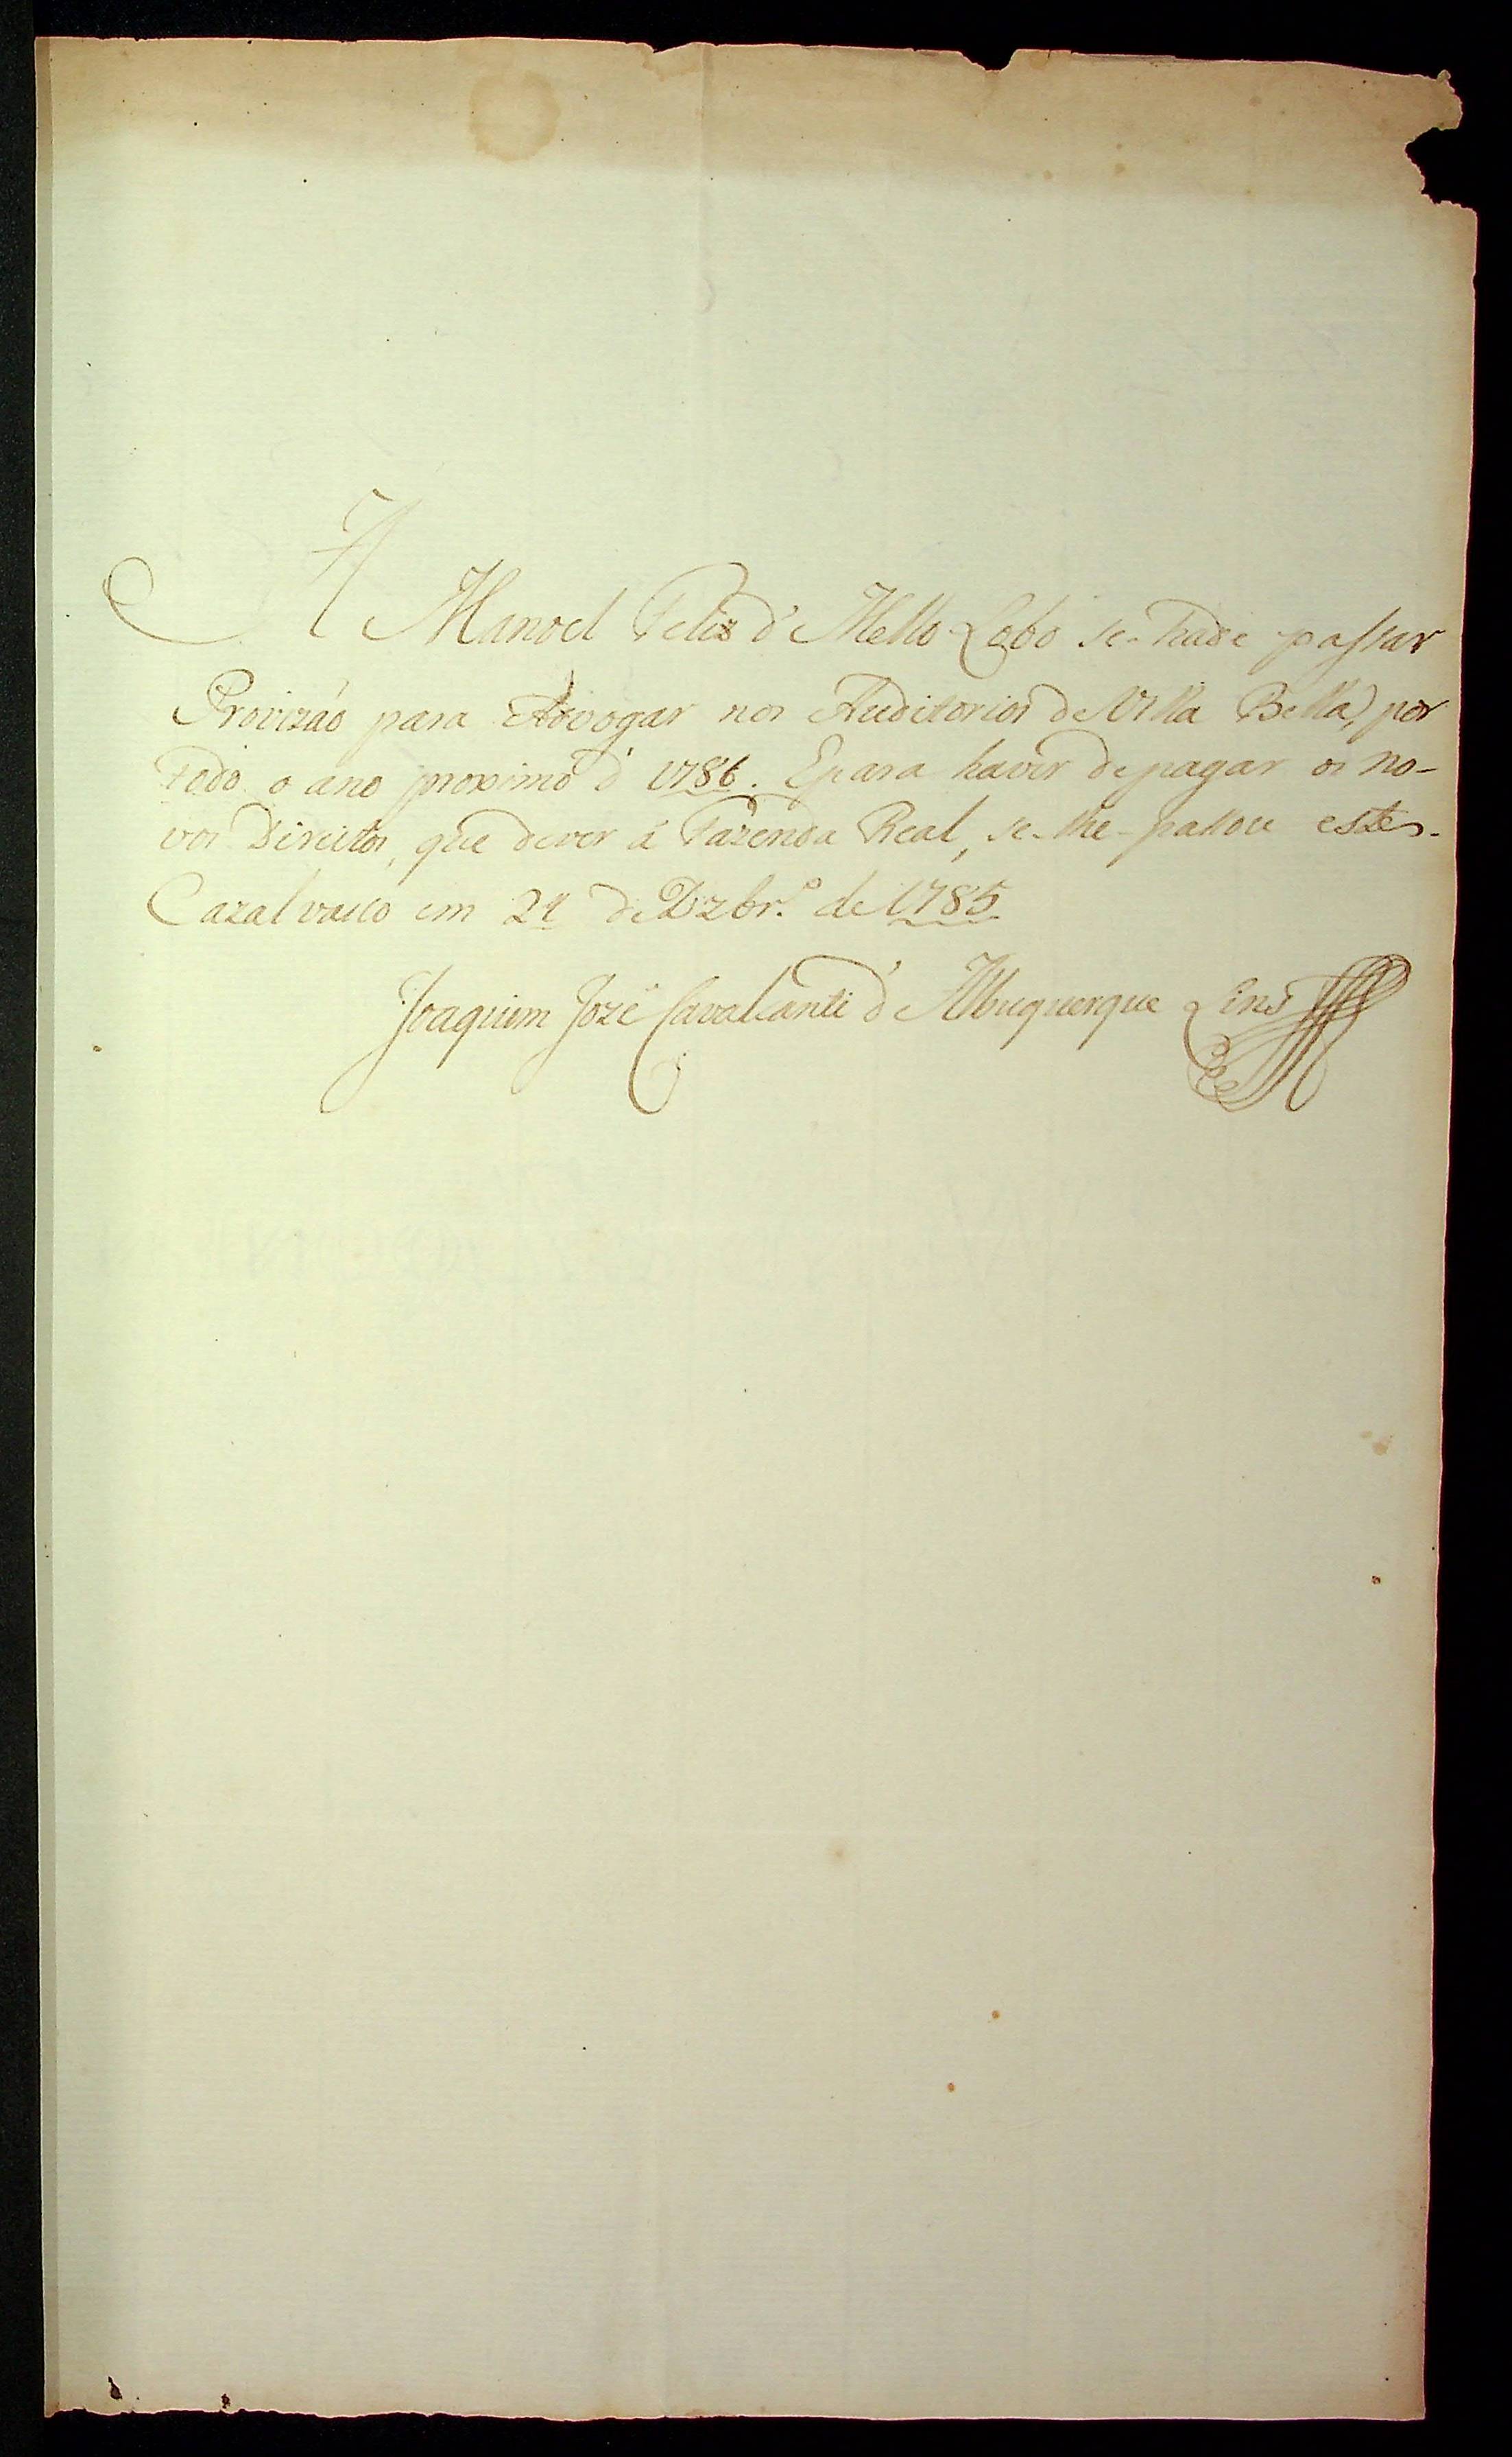 A Manoel Felis d'Mello Lobo se-hade passar
Provizaó para Advogar nos Auditorios de Villa Bella, por
todo o ano proximo d' 1786. Epara haver depagar os no-
vos Direitos, que dever á Fazenda Real, se-lhe-passou este.
Cazalvasco em 24 de Dzbr.º de 1785
Joaquim Jozé Cavalcanti d'Albuquerque Lins